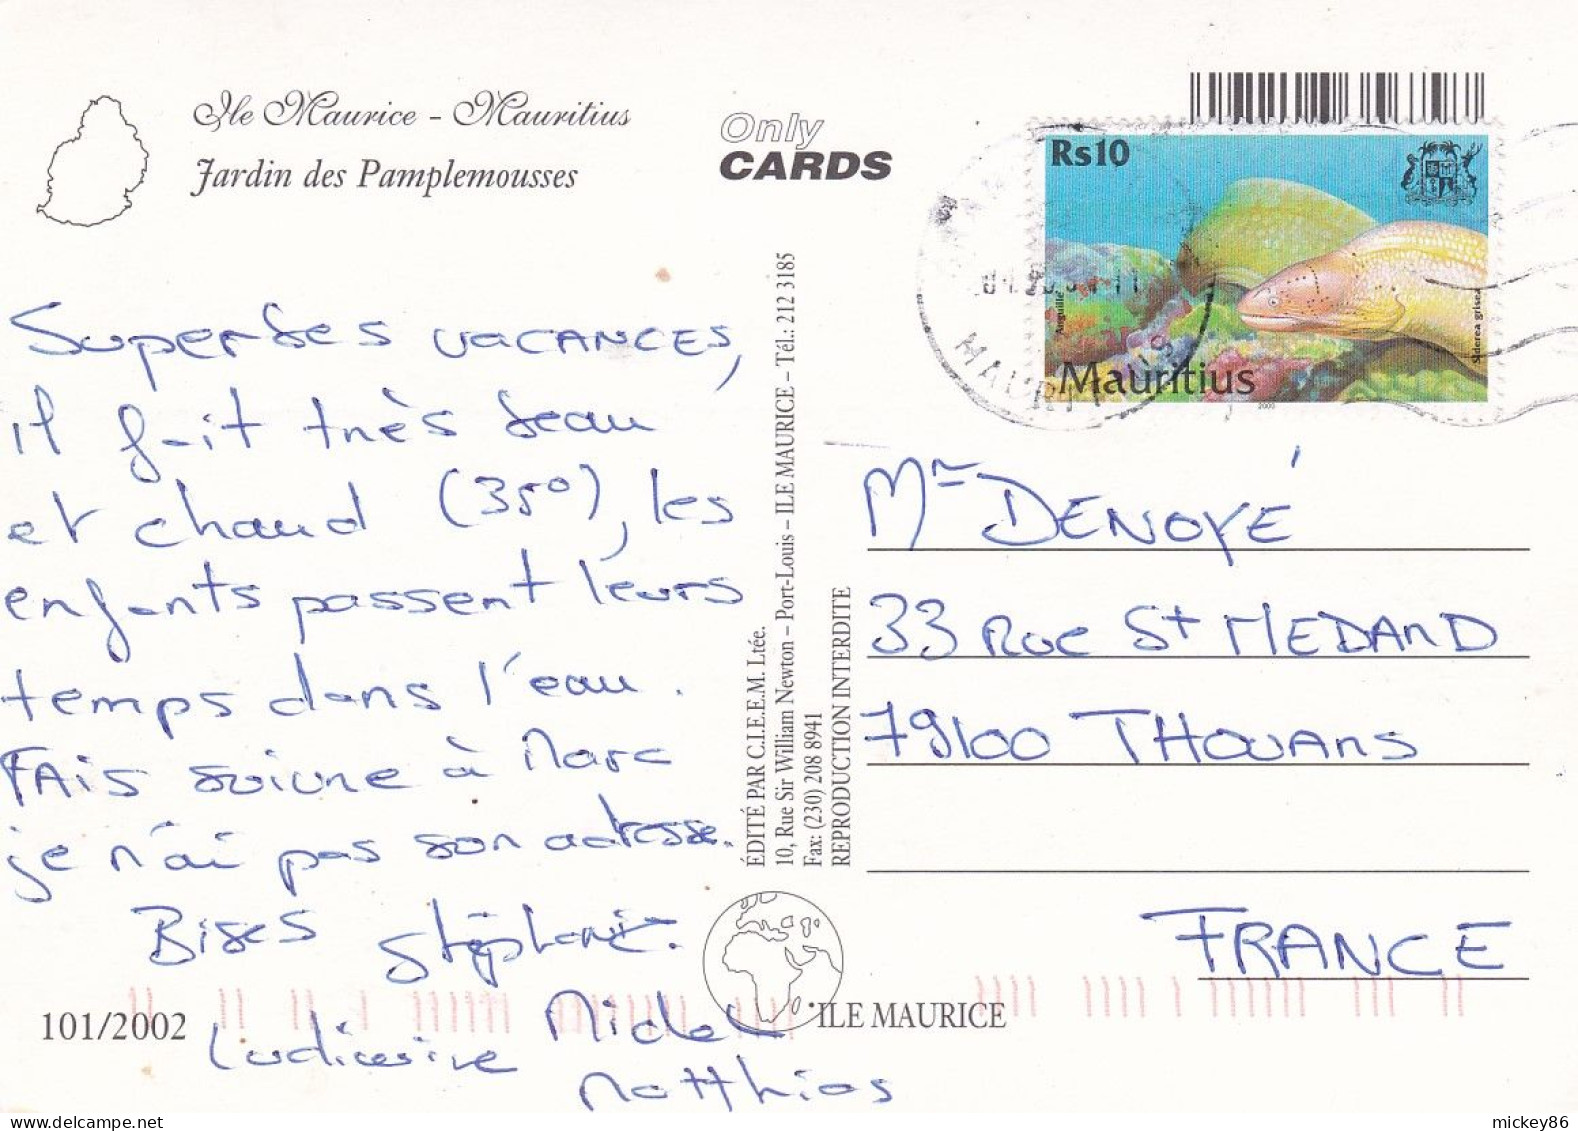 Ile Maurice - Mauritius
Jardin des Pamplemousses
Only
CARDS
Rs10
Anguille
Siderea grisea
Mauritius
2000
MAURITIUS
Superbes vacances,
il fait très beau
et chaud (35°), les
enfants passent leurs
temps dans l'eau.
FAIS suivre à Marc
je n'ai pas son adresse.
Bises Stéphanie.
Michel
Ludivine
Matthias
ÉDITÉ PAR C.I.E.E.M. Ltée.
10, Rue Sir William Newton – Port-Louis – ILE MAURICE – Tél.: 212 3185
Fax: (230) 208 8941
REPRODUCTION INTERDITE
Mr DENOYÉ
33 Rue St MEDARD
79100 THOUARS
FRANCE
101/2002
ILE MAURICE
mickey86
delcampe.net